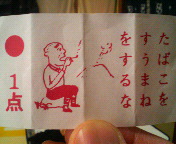 たばこを
すうまね
をするな
1点